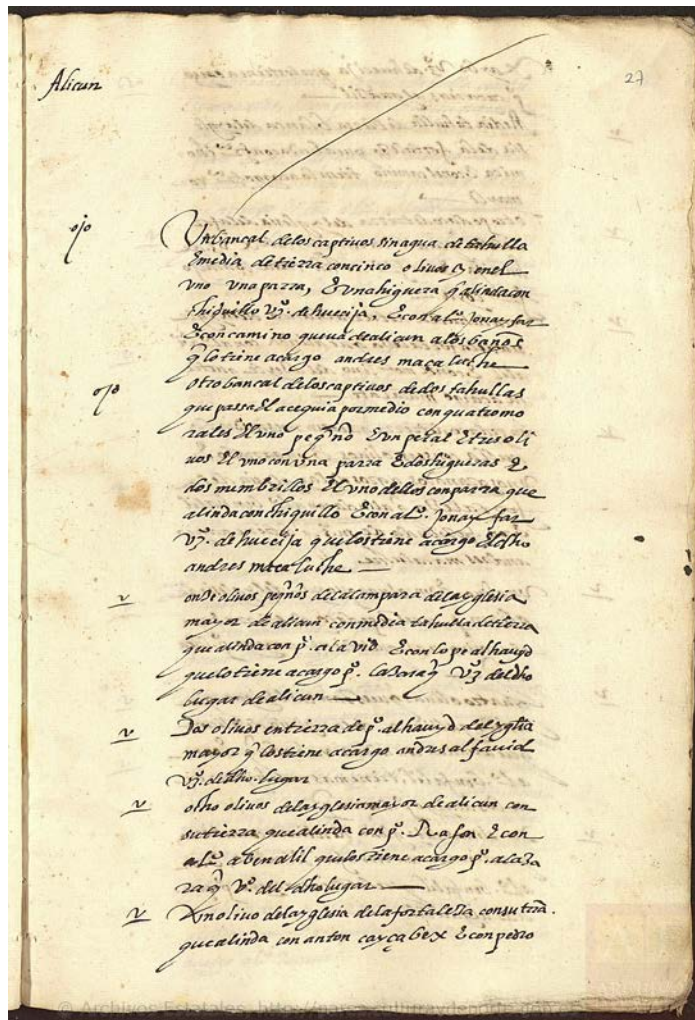 27
Alicun
ojo
Un bancal de los captivos sin agua de tahulla
E media de tierra con cinco olivos y en el
uno una parra, E vna higuera q̃ alinda con
chiquillo vº. de huecija, E con alº. jonay far
E con camino que va de alicun a los baños
q̃ lo tiene a cargo andres maca luche
ojo
otro bancal de los captivos de dos tahullas
que passa El acequia por medio con quatro mo
rales El uno peqño E vn peral E tres oli
vos El vno con vna parra E dos higueras E
dos membrillos El vno dellos con parra que
alinda con chiquillo E con alº. jonay far
vº. de huecija que los tiene a cargo El dho
andres maca luche
v
onze olivos peqños de la lampara de la yglesia
mayor de alicun con media tahulla de tierra
que alinda con pº. alavid E con lope alhauyd
que lo tiene a cargo pº. vº del dho
lugar de alicun
v
Dos olivos en tierra de pº. alhauyd de la yglia
mayor q̃ los tiene a cargo andres alfauid
vº. de dho. lugar
v
otho olivos de la yglesia mayor de alicun con
su tierra que alinda con pº. Rafon E con
alº. abenalil que los tiene a cargo pº. alaza
raq̃ vº. del dho lugar
v
Un olivo de la yglesia de la fortaleza con su trã.
que alinda con anton cayçabex E con pedro
© Archivos Estatales,